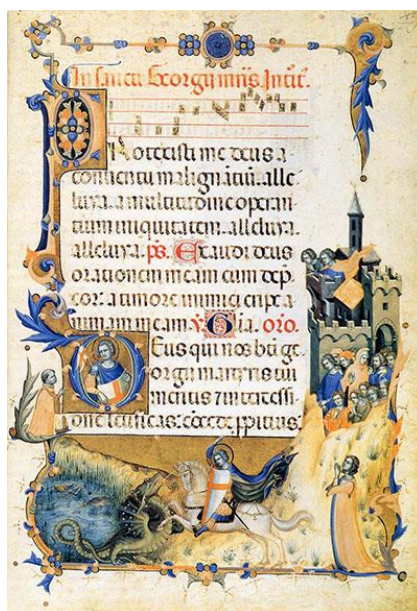 In sancti Georgii mris Introit.
Protexisti me deus a
conuentu malignātiū. alle
luya. a multitudine operan
tium iniquitatem. alleluya.
alleluya. ps. Exaudi deus
orationem meam cum dep̄
cor: a timore inimici eripe a
nimam meam. V Glia. oro.
Deus qui nos bti ge
orgii martyris tui
meritis 7 intercessi
one letificas: cōcede ppitius: